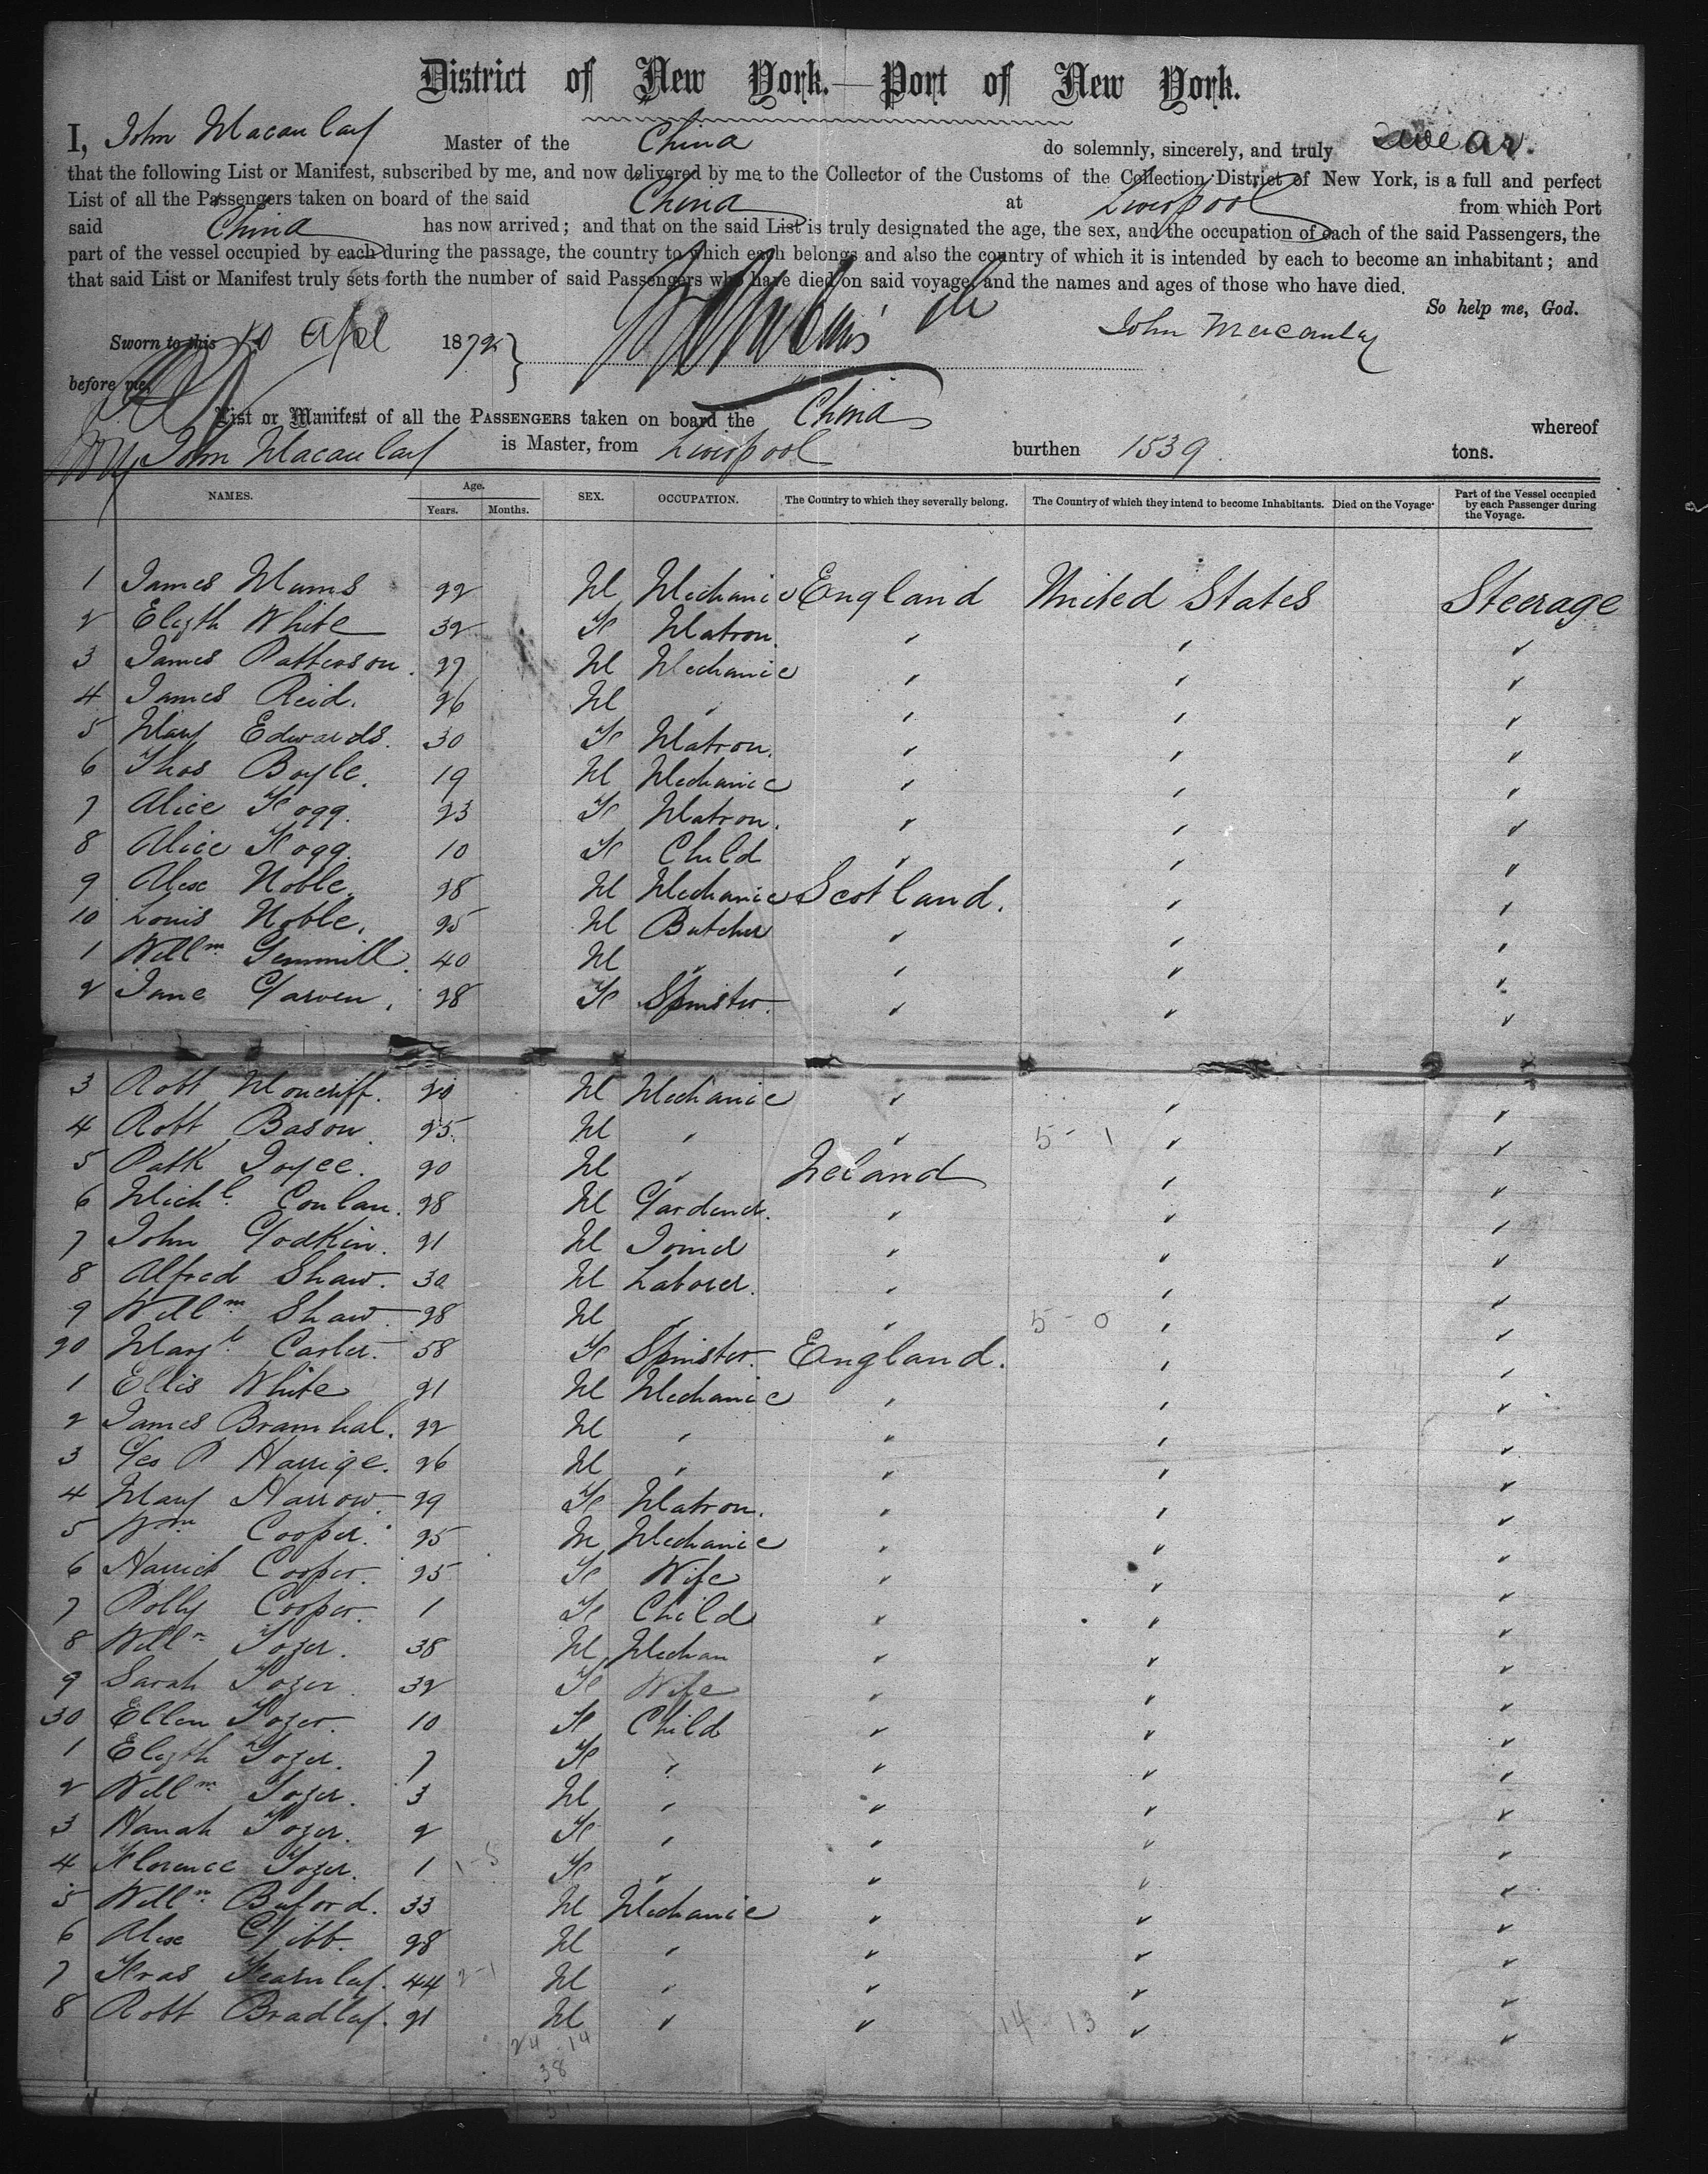 District of New York.—Port of New York.
I, John Macaulay Master of the China do solemnly, sincerely, and truly swear.
that the following List or Manifest, subscribed by me, and now delivered by me to the Collector of the Customs of the Collection District of New York, is a full and perfect
List of all the Passengers taken on board of the said China at Liverpool from which Port
said China has now arrived; and that on the said List is truly designated the age, the sex, and the occupation of each of the said Passengers, the
part of the vessel occupied by each during the passage, the country to which each belongs and also the country of which it is intended by each to become an inhabitant; and
that said List or Manifest truly sets forth the number of said Passengers who have died on said voyage, and the names and ages of those who have died.
So help me, God.
Sworn to this 10 Apl 1872 John Macaulay
before me,
List or Manifest of all the PASSENGERS taken on board the China whereof
John Macaulay is Master, from Liverpool burthen 1539 tons.
NAMES. Age. Years. Months. SEX. OCCUPATION. The Country to which they severally belong. The Country of which they intend to become Inhabitants. Died on the Voyage. Part of the Vessel occupied by each Passenger during the Voyage.
1 James 22 M Mechanic England United States Steerage
2 Elizth White 32 F Matron " " "
3 James Patterson. 27 M Mechanic " " "
4 James Reid. 26 M " " " "
5 Mary Edwards. 30 F Matron. " " "
6 Thos Boyle. 19 M Mechanic " " "
7 Alice Fogg. 23 F Matron. " " "
8 Alice Fogg. 10 F Child " " "
9 Alex Noble. 28 M Mechanic Scotland. " "
10 Louis Noble. 25 M Butcher " " "
1 Willm Gemmill. 40 M " " " "
2 Jane Garven. 28 F Spinster. " " "
3 Robt Moncriff. 20 M Mechanic " " "
4 Robt Bason. 25. M " " 5 - 1 " "
5 Patk Joyce. 20 M " Ireland " "
6 Michl Conlan. 28 M Gardener. " " "
7 John Godkin. 21 M Joiner " " "
8 Alfred Shaw. 30 M Laborer. " " "
9 Willm Shaw 28 M " " 5 - 0 " "
20 Margt Carter. 58 F Spinster. England. " "
1 Ellis White 21 M Mechanic " " "
2 James Bramhal. 22 M " " " "
3 Geo P Harrige. 26 M " " " "
4 Mary Harrow 29 F Matron. " " "
5 Wm Cooper. 25 M Mechanic " " "
6 Harriet Cooper. 25 F Wife " " "
7 Polly Cooper. 1 F Child " " "
8 Willm Tozer. 38 M Mechan " " "
9 Sarah Tozer. 32 F Wife " " "
30 Ellen Tozer. 10 F Child " " "
1 Elizth Tozer. 7 F " " " "
2 Willm Tozer. 3 M " " " "
3 Hanah Tozer. 2 F " " " "
4 Florence Tozer. 1 1-5 F " " " "
5 Willm Buford. 33 M Mechanic " " "
6 Alex Gibb. 28 M " " " "
7 Fras Fearnlay. 44 2-1 M " " " "
8 Robt Bradlay. 21 M " " 14 - 13 " "
24 14
38